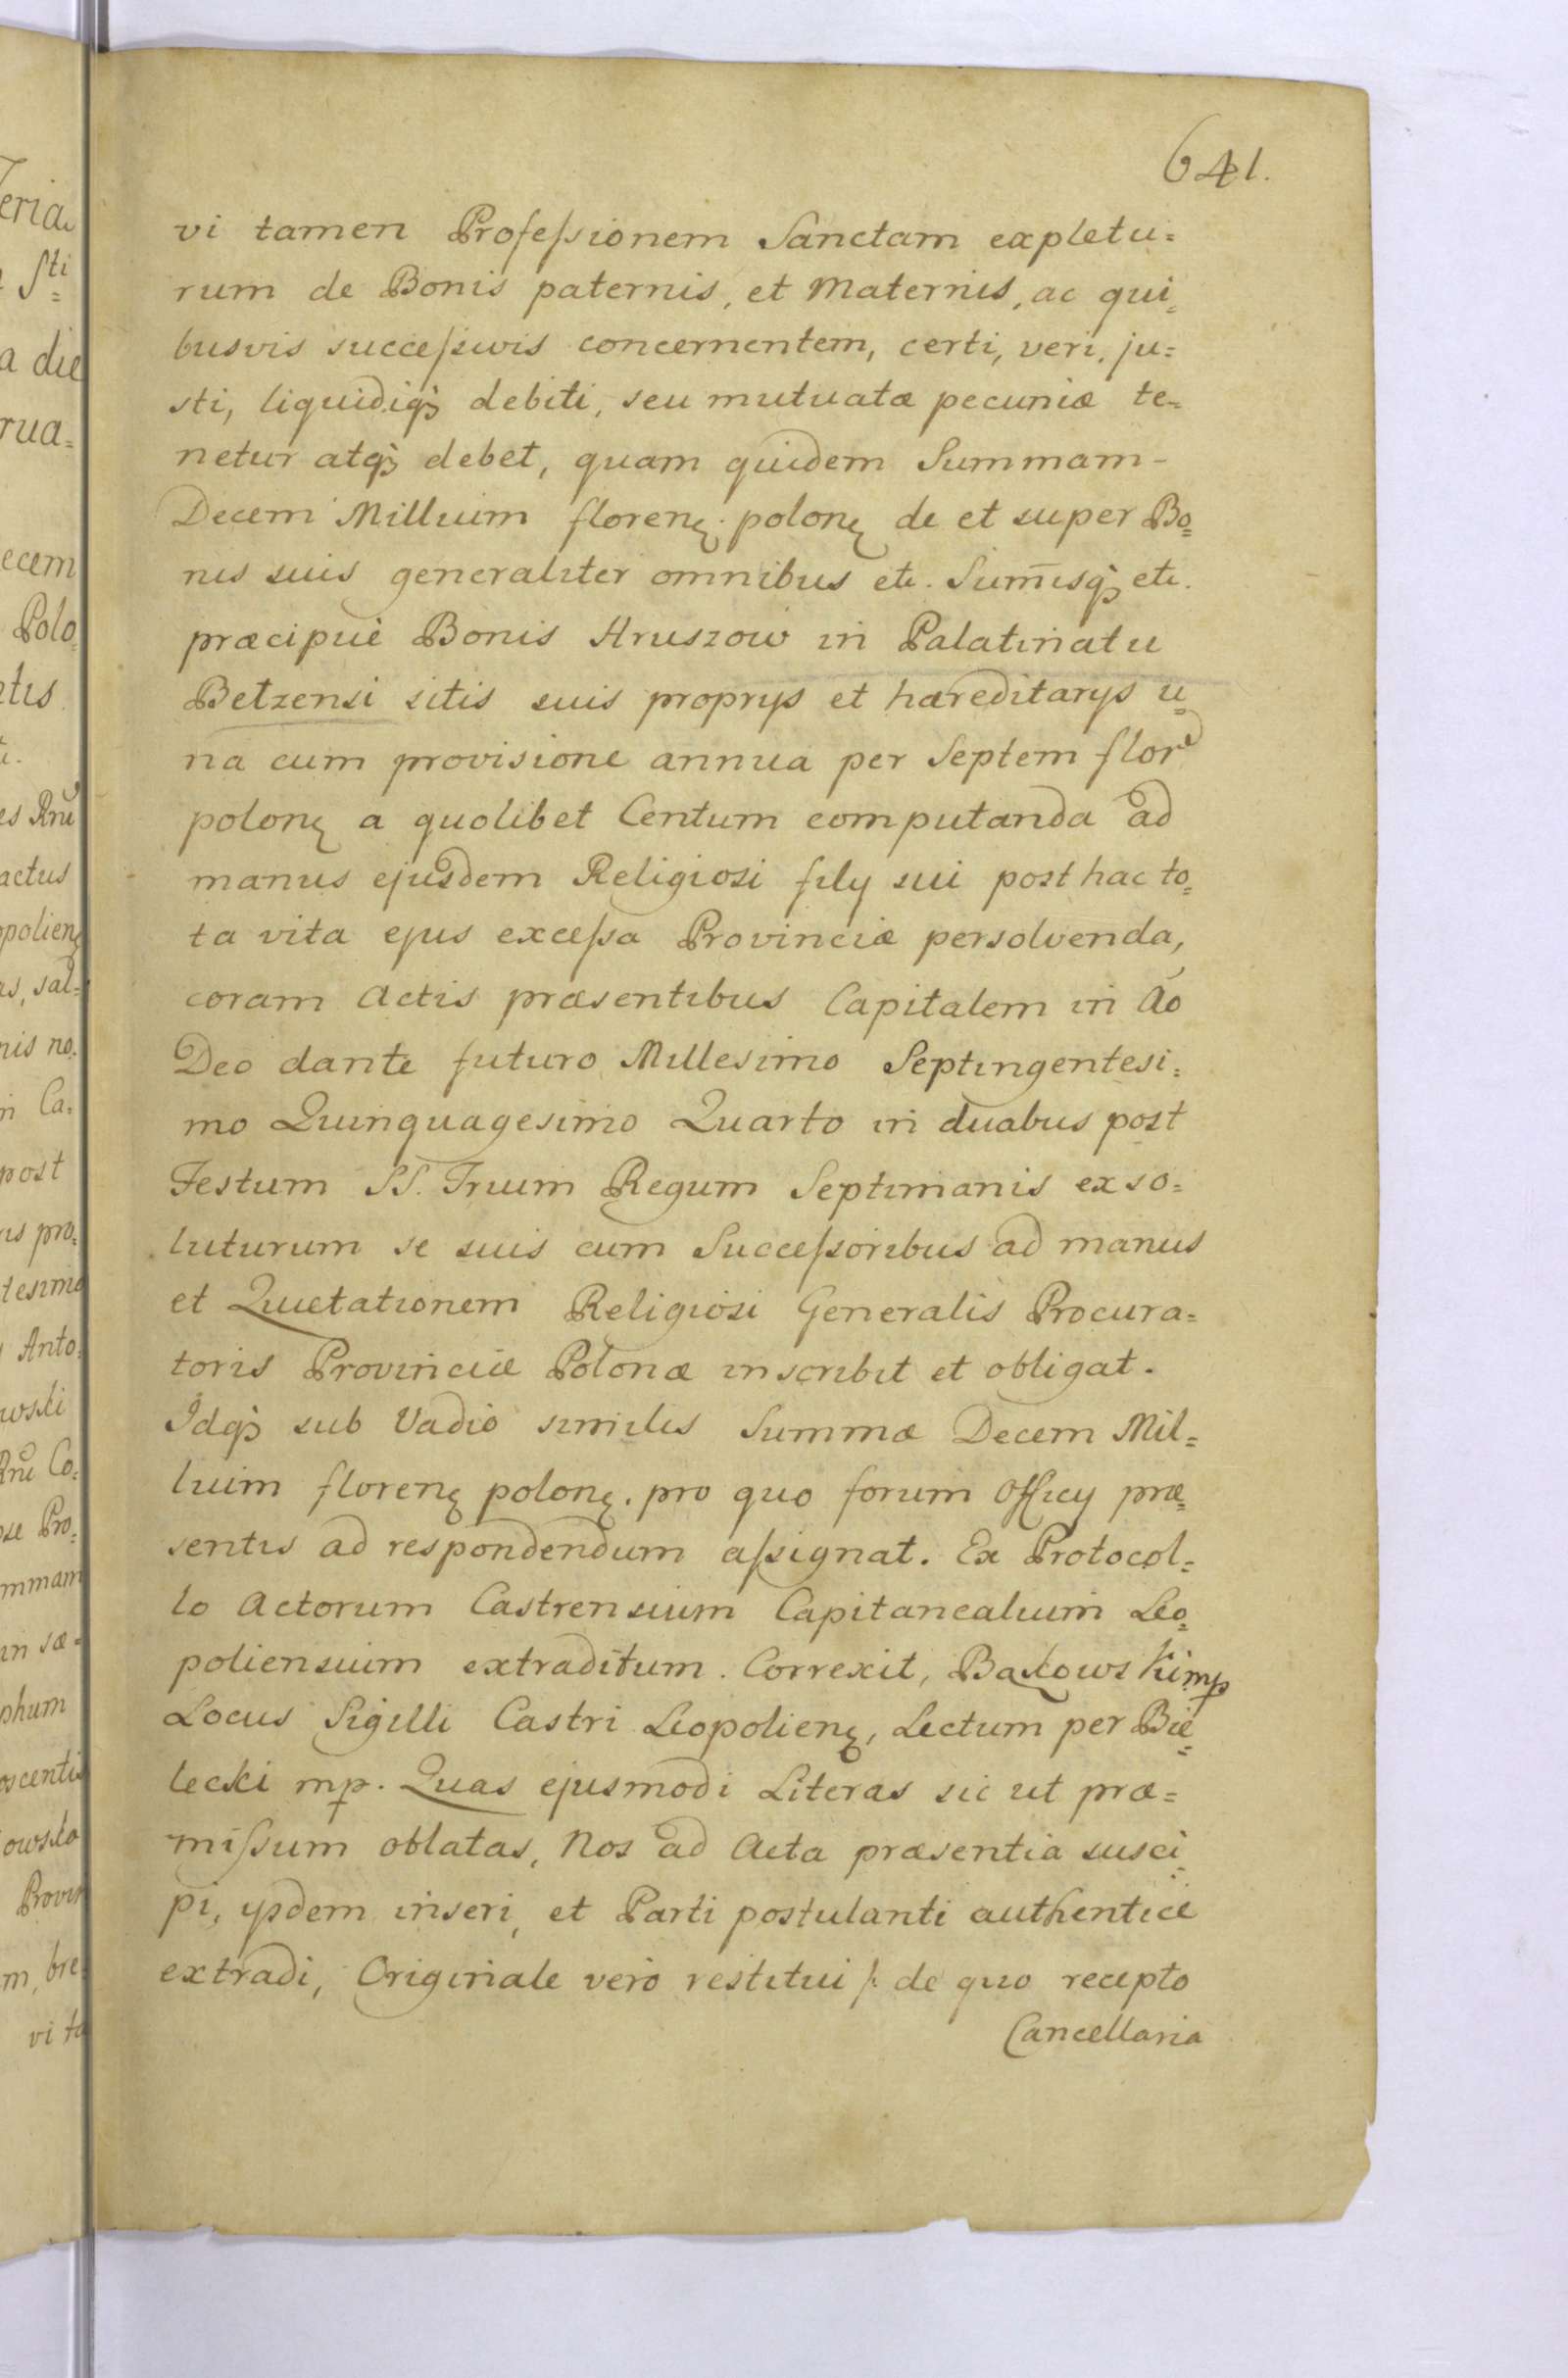 641.
vi tamen Profeſsionem Sanctam expletu=
rum de Bonis paternis, et Maternis, ac qui=
busvis succeſsivis concernentem, certi, veri, ju=
sti, liquidiqꝫ debiti, seu mutuatæ pecuniæ te=
netur atqꝫ debet, quam quidem Summam -
Decem Millium florenę. polonę de et super Bo=
nis suis generaliter omnibus etc. Sum̄isqꝫ etc.
præcipuè Bonis Hruszow in Palatinatu
Betzensi sitis suis proprys et hæreditarys u=
na cum provisione annua per Septem flor
polonę a quolibet Centum computanda ad
manus ejusdem Religiosi fily sui post hac to=
ta vita ejus exceſsa Provinciæ persolvenda,
coram Actis præsentibus Capitalem in Ao
Deo dante futuro Millesimo Septingentesi=
mo Quinquagesimo Quarto in duabus post
Festum SS. Trium Regum Septimanis exso=
luturum se suis cum Succeſsoribus ad manus
et Quietationem Religiosi Generalis Procura=
toris Provinciæ Polonæ inscribit et obligat.
Idqꝫ sub Vadio similis Summæ Decem Mil=
lium florenę polonę. pro quo forum Officy præ=
sentis ad respondendum aſsignat. Ex Protocol=
lo Actorum Castrensium Capitanealium Leo=
poliensium extraditum. Correxit, Bakowski mp
Locus Sigilli Castri Leopolienę, Lectum per Bie=
lecki mp. Quas ejusmodi Literas sic ut præ=
miſsum oblatas, Nos ad Acta præsentia susci=
pi, ysdem inseri, et Parti postulanti authenticè
extradi, Originale verò restitui /: de quo recepto
Cancellaria